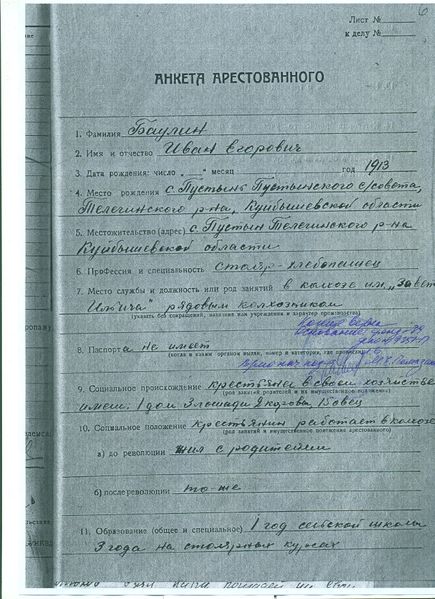 6
Лист №
к делу №
АНКЕТА АРЕСТОВАННОГО
1. Фамилия Баулин
2. Имя и отчество Иван Егорович
3. Дата рождения: число „ “ месяц год 1913
4. Место рождения с. Пустынь Пустынского с/совета,
Телегинского р-на, Куйбышевской области
5. Местожительство (адрес) с. Пустынь Телегинского р-на
Куйбышевской области
6. Профессия и специальность столяр-хлебопашец
7. Место службы и должность или род занятий в колхозе им. „Завет
Ильича" рядовым колхозником
(указать без сокращений, название учреждения и характер производства)
Копия верна
8. Паспорта не имеет
(когда и каким органом выдан, номер и категория, где прописан)
9. Социальное происхождение крестьяне в своем хозяйстве
(род занятий родителей и их имущественное положение)
имели 1 дом 3 лошади 2 коровы, 15 овец
10. Социальное положение крестьянин работает в колхозе
(род занятий и имущественное положение арестованного)
а) до революции жил с родителями
б) после революции то-же
11. Образование (общее и специальное) 1 год сельской школы
3 года на столярных курсах